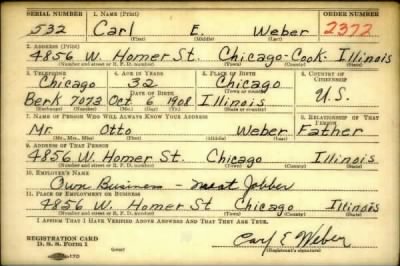 SERIAL NUMBER 1. NAME (Print) ORDER NUMBER
532 Carl E. Weber 2372
(First) (Middle) (Last)
2. ADDRESS (Print)
4856 W. Homer St. Chicago - Cook - Illinois
(Number and street or R. F. D. number) (Town) (County) (State)
3. TELEPHONE 4. AGE IN YEARS 5. PLACE OF BIRTH 6. COUNTRY OF CITIZENSHIP
Chicago 32 Chicago
DATE OF BIRTH (Town or county)
Berk 7073 Oct. 6 1908 Illinois U.S.
(Exchange) (Number) (Mo.) (Day) (Yr.) (State or country)
7. NAME OF PERSON WHO WILL ALWAYS KNOW YOUR ADDRESS 8. RELATIONSHIP OF THAT PERSON
Mr. Otto Weber Father
(Mr., Mrs., Miss) (First) (Middle) (Last)
9. ADDRESS OF THAT PERSON
4856 W. Homer St. Chicago Illinois
(Number and street or R. F. D. number) (Town) (County) (State)
10. EMPLOYER'S NAME
Own Business - Meat Jobber
11. PLACE OF EMPLOYMENT OR BUSINESS
4856 W. Homer St Chicago Illinois
(Number and street or R. F. D. number) (Town) (County) (State)
I AFFIRM THAT I HAVE VERIFIED ABOVE ANSWERS AND THAT THEY ARE TRUE.
REGISTRATION CARD
D. S. S. Form 1
(over)
Carl E Weber
(Registrant's signature)